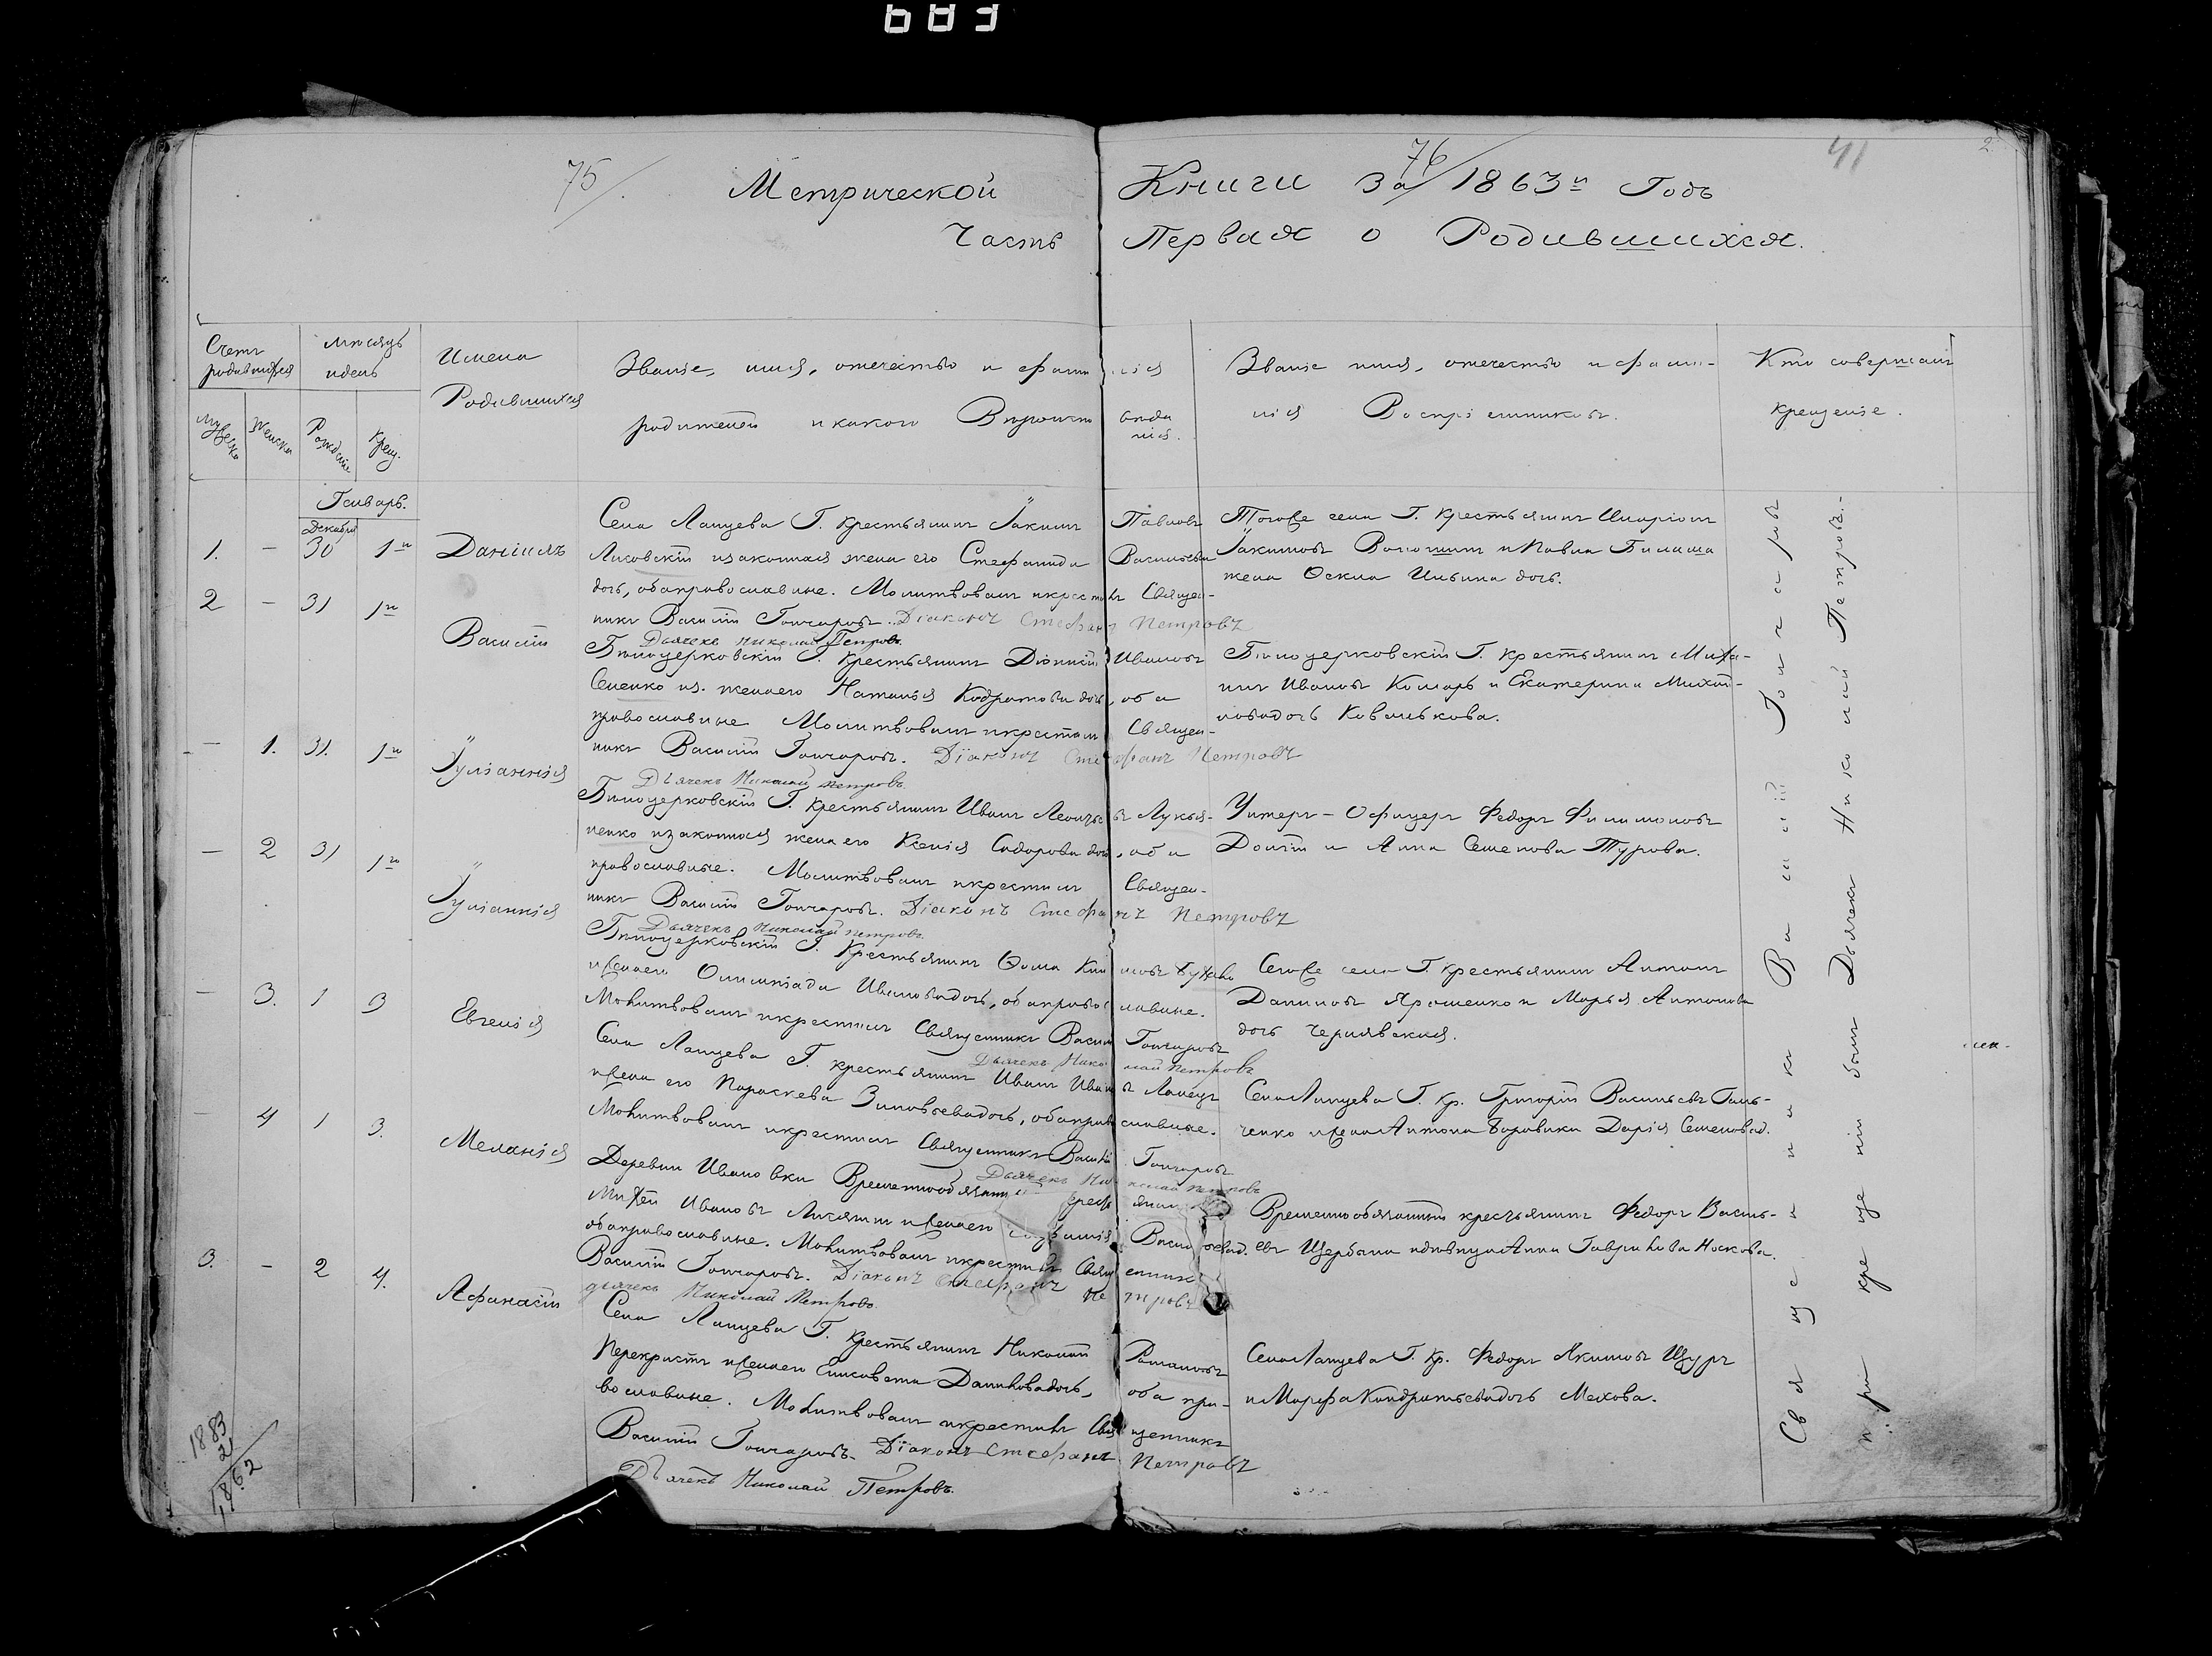 683
75 76 41 2
Метрической Книги За 1863й Годъ
Часть Первая о Родившихся.
Счетъ родившихся
Мѣсяцъ и день
Имена Родившихся
Званіе, имя, отечество и фамилія
родителей и какого Вѣроисповѣданія.
Званіе имя, отечество и фамилія Воспріемниковъ.
Кто совершалъ крещеніе.
Мужеска Женска Рожденіе Крещ.
Генварь.
Декабря
1. — 30 1го Даніилъ
Села Лапцева Г. Крестьянинъ Іакимъ Павловъ
Лисовскій и законная жена его Стефанида Васильева
дочь, оба православные. Молитвовалъ и крестилъ Священ-
никъ Василій Гончаровъ. Діаконъ Стефанъ Петровъ
Дьячекъ Николай Петровъ.
Тогоже села Г. Крестьянинъ Иларіонъ
Іакимовъ Волошинъ и Павла Билаша
жена Оскла Ильина дочь.
2 — 31 1го Василій
Бѣлоцерковскій Г. Крестьянинъ Діонисій Ивановъ
Семенко из. жена его Наталья Кодратова дочь, оба
православные Молитвовалъ и крестилъ Священ-
никъ Василій Гончаровъ. Діаконъ Стефанъ Петровъ
Дьячекъ Николай Петровъ.
Бѣлоцерковскій Г. крестьянинъ Миха-
илъ Ивановъ Комарь и Екатерина Михай-
лова дочь Ковалькова.
— 1. 31. 1го Іуліаннія
Бѣлоцерковскій Г. Крестьянинъ Иванъ Леонтьевъ Лукья-
ненко и законная жена его Ксенія Сидорова дочь, оба
православные. Молитвовалъ и крестилъ Священ-
никъ Василій Гончаровъ. Діаконъ Стефанъ Петровъ
Дьячекъ Николай Петровъ
Унтеръ-Офицеръ Федоръ Филимоновъ
Долгій и Анна Семенова Турова.
— 2 31 1го Іуліаннія
Бѣлоцерковскій Г. Крестьянинъ Ѳома
и жена его Олимпіада Иванова дочь, оба православные.
Молитвовалъ и крестилъ Священникъ Василій Гончаровъ
Дьячекъ Николай Петровъ
Сегоже села Г. Крестьянинъ Антонъ
Даниловъ Ярошенко и Марья Антонова
дочь Чернявская.
— 3. 1 3 Евгенія
Села Лапцева Г. крестьянинъ Иванъ Ивановъ Лапецъ
и жена его Параскева Зиновьева дочь, оба православные.
Молитвовалъ и крестилъ Священникъ Василій Гончаровъ
Дьячекъ Николай Петровъ
Села Лапцева Г. Кр. Григорій Васильевъ Галь-
ченко и жена Антона Боровика Дарія Семенова д.
— 4 1 3. Меланія
Деревни Ивановки Временнообязанный крестьянинъ
Михей Ивановъ Личятин и жена его Васильева д.
оба православные. Молитвовалъ и крестилъ Священникъ
Василій Гончаровъ. Діаконъ Стефанъ Петровъ
дьячекъ Николай Петровъ.
Временнообязанный крестьянинъ Федоръ Василь-
евъ Щербина и дѣвица Анна Гаврилова Носкова.
3. — 2 4. Афанасій
Села Лапцева Г. Крестьянинъ Николай Романовъ
Перекристъ и жена его Елисавета Данилова дочь, оба пра-
вославные. Молитвовалъ и крестилъ Священникъ
Василій Гончаровъ. Діаконъ Стефанъ Петровъ
Дьячекъ Николай Петровъ.
Села Лапцева Г. Кр. Федоръ Якимовъ Щуръ
и Марфа Кондратьева дочь Мехова.
Священникъ Василій Гончаровъ
при крещеніи былъ Дьячекъ Николай Петровъ.
1883
21
1862